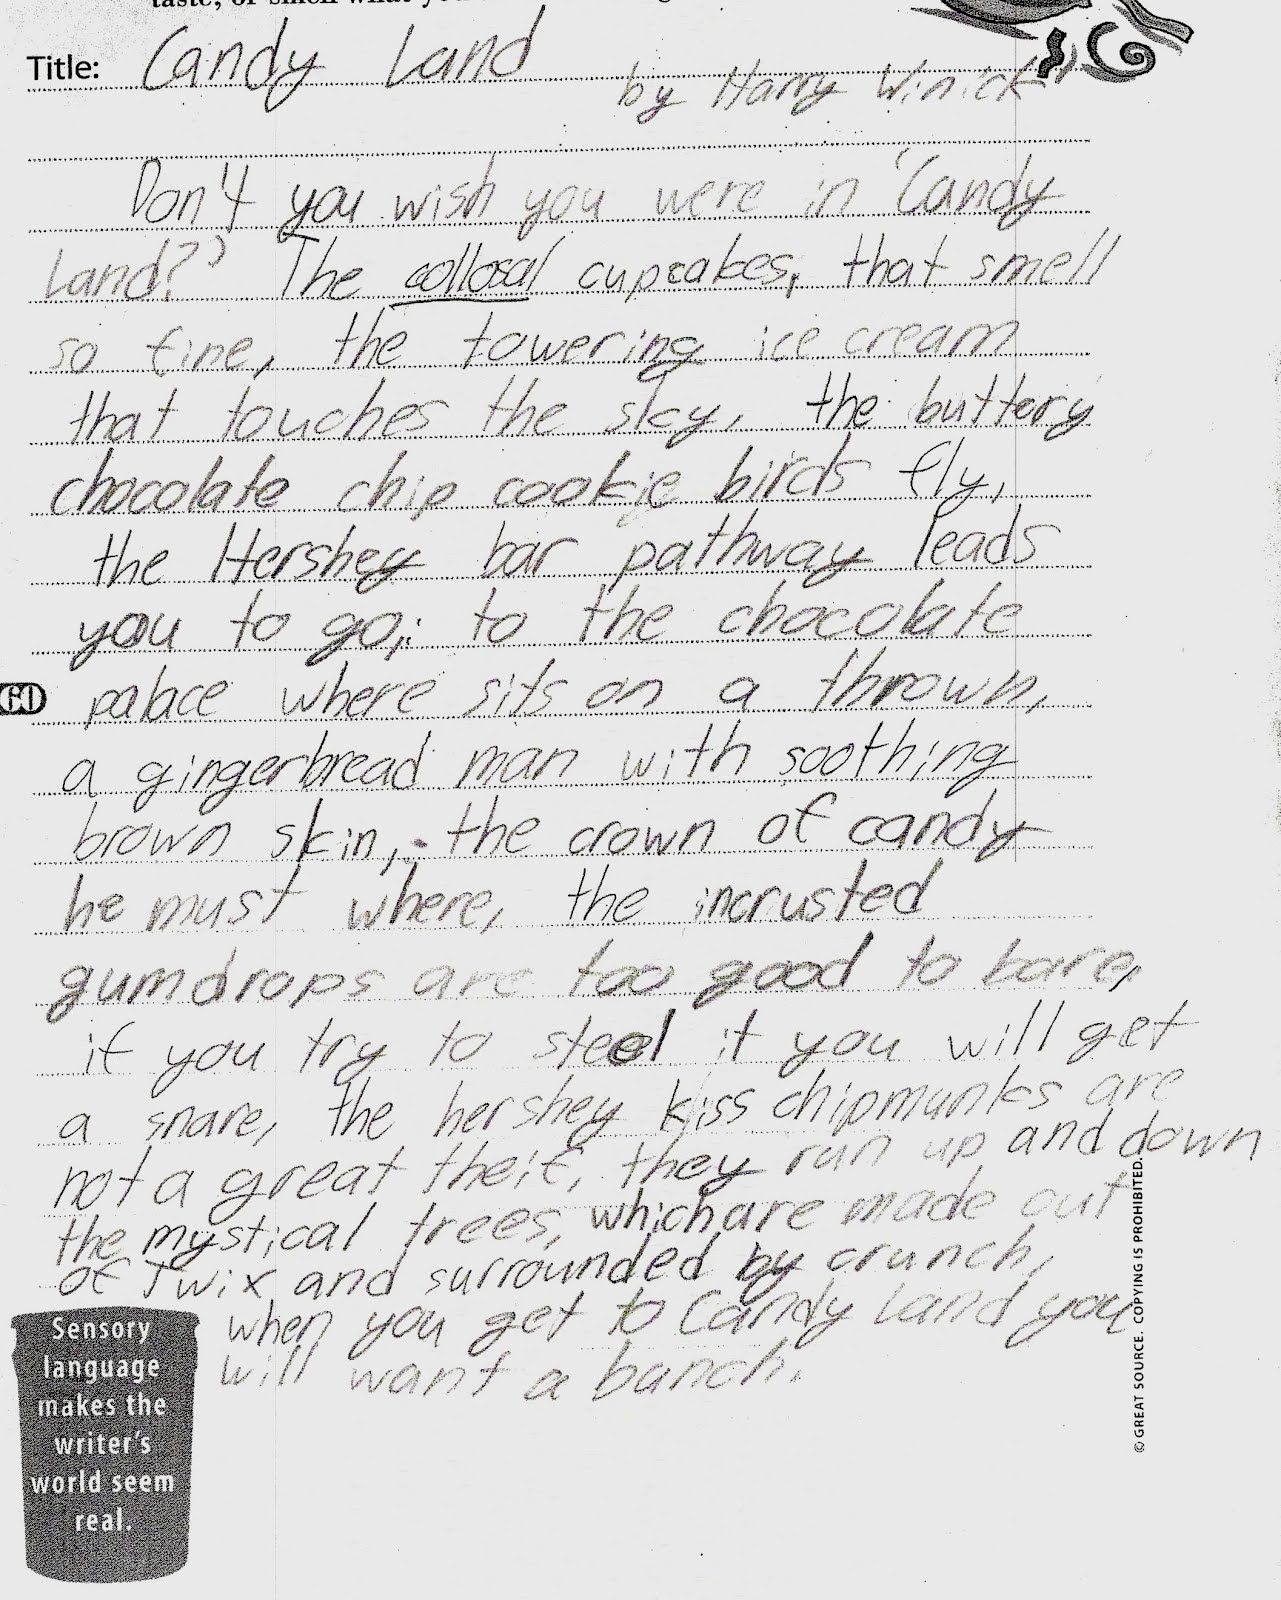 Title: Candy Land
by Harry Winick
Don't you wish you were in 'Candy
Land?' The collosal cupcakes, that smell
so fine, the towering ice cream
that touches the sky, the buttery
chocolate chip cookie birds fly,
the Hershey bar pathway leads
you to go, to the chocolate
palace where sits on a thrown,
a gingerbread man with soothing
brown skin, the crown of candy
he must where, the incrusted
gumdrops are too good to bare,
if you try to steel it you will get
a snare, the hershey kiss chipmunks are
not a great theif, they run up and down
the mystical trees, which are made out
of Twix and surrounded by crunch,
when you get to Candy Land you
will want a bunch.
60
Sensory
language
makes the
writer's
world seem
real.
© GREAT SOURCE. COPYING IS PROHIBITED.